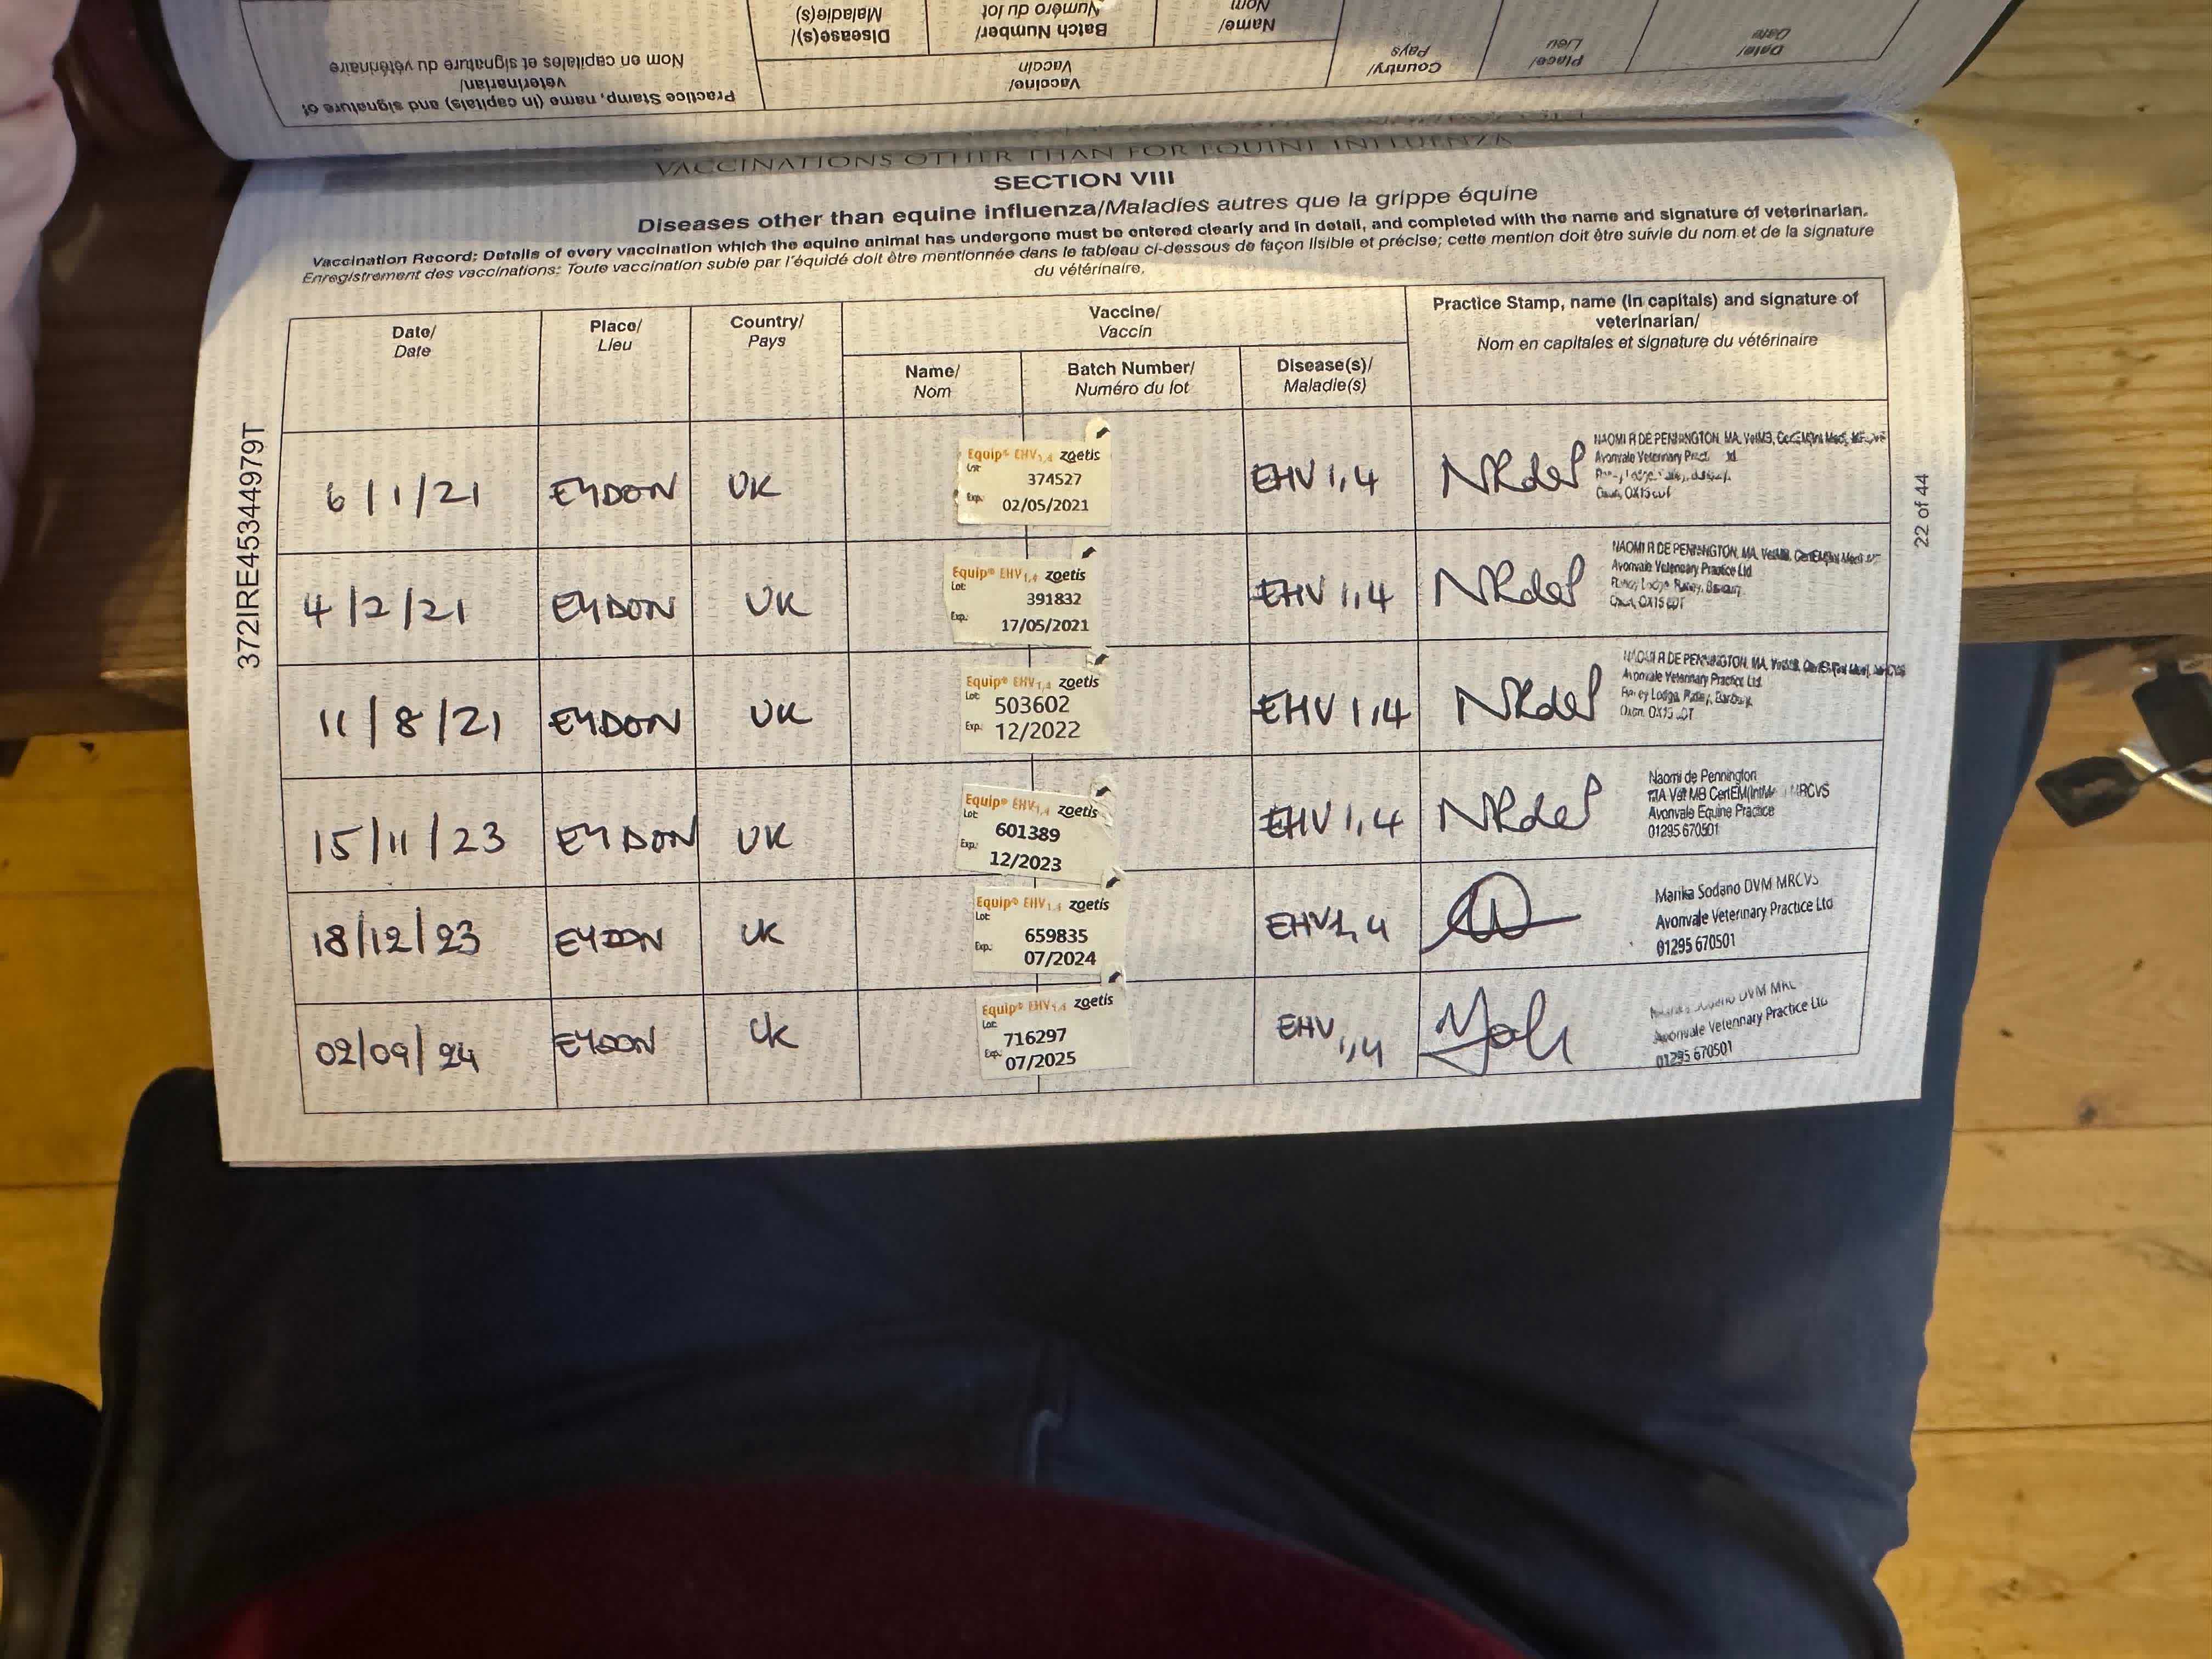 Practice Stamp, name (in capitals) and signature of
veterinarian/
Nom en capitales et signature du vétérinaire
Vaccine/
Vaccin
Disease(s)/
Maladie(s)
Batch Number/
Numéro du lot
Name/
Nom
Country/
Pays
Place/
Lieu
Date/
Date
VACCINATIONS OTHER THAN FOR EQUINE INFLUENZA
SECTION VIII
Diseases other than equine influenza/Maladies autres que la grippe équine
Vaccination Record: Details of every vaccination which the equine animal has undergone must be entered clearly and in detail, and completed with the name and signature of veterinarian.
Enregistrement des vaccinations: Toute vaccination subie par l'équidé doit être mentionnée dans le tableau ci-dessous de façon lisible et précise; cette mention doit être suivie du nom et de la signature
du vétérinaire.
Date/
Date
Place/
Lieu
Country/
Pays
Vaccine/
Vaccin
Name/
Nom
Batch Number/
Numéro du lot
Disease(s)/
Maladie(s)
Practice Stamp, name (in capitals) and signature of
veterinarian/
Nom en capitales et signature du vétérinaire
6/1/21 EYDON UK
Equip® EHV1,4 zoetis
Lot:
374527
Exp.
02/05/2021
EHV 1,4
NRdeP
NAOMI R DE PENNINGTON, MA, VetMB,
Avonvale Veterinary
4/2/21 EYDON UK
Equip® EHV1,4 zoetis
Lot:
391832
Exp.:
17/05/2021
EHV 1,4
NRdeP
NAOMI R DE PENNINGTON, MA, VetMB,
Avonvale Veterinary Practice Ltd
11/8/21 EYDON UK
Equip® EHV1,4 zoetis
Lot:
503602
Exp.
12/2022
EHV 1,4
NRdeP
NAOMI R DE PENNINGTON, MA,
Avonvale Veterinary Practice Ltd
15/11/23 EYDON UK
Equip® EHV1,4 zoetis
Lot:
601389
Exp.:
12/2023
EHV 1,4
NRdeP
Naomi de Pennington
MA Vet MB MRCVS
Avonvale Equine Practice
01295 670501
18/12/23 EYDON UK
Equip® EHV1,4 zoetis
Lot:
659835
Exp.:
07/2024
EHV1,4
Marika Sodano DVM MRCVS
Avonvale Veterinary Practice Ltd
01295 670501
02/09/24 EYDON UK
Equip® EHV1,4 zoetis
Lot:
716297
Exp.:
07/2025
EHV 1,4
Sodano DVM
Avonvale Veterinary Practice Ltd
01295 670501
372IRE45344979T
22 of 44